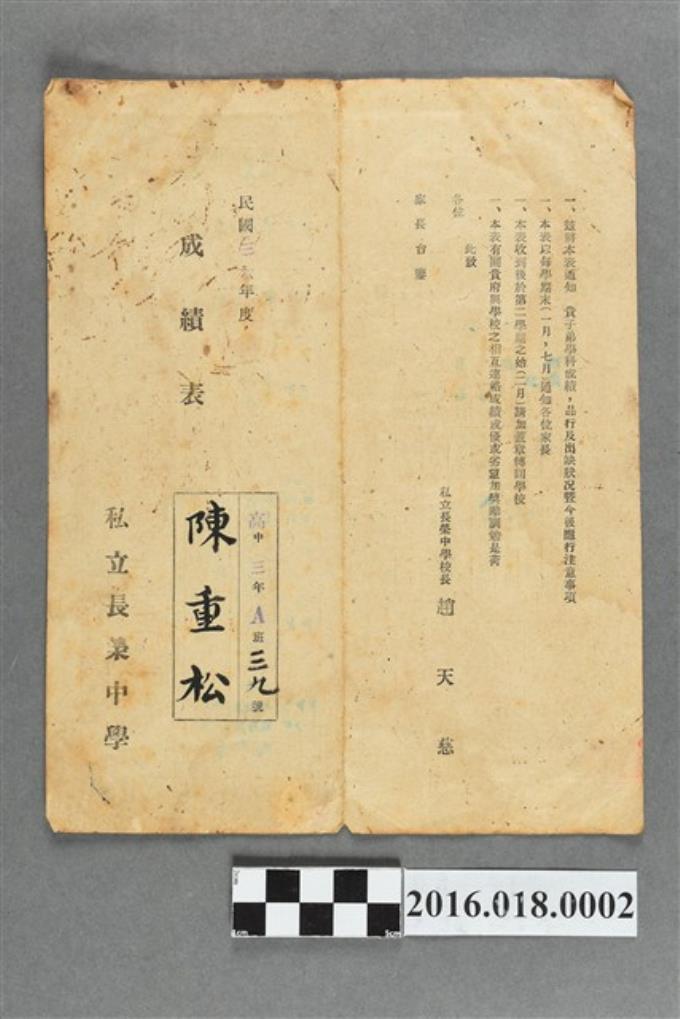 一、茲將本表通知 貴子弟學科成績，品行及出缺狀況暨今後應行注意事項
一、本表以每學期末(一月，七月)通知各位家長
一、本表收到後於第二學期之始(二月)請加蓋章轉回學校
一、本表有關貴府與學校之相互連絡成績或優或劣宜加獎勵訓勉是荷
此致
各位
家長台鑒
私立長榮中學校長 趙天慈
民國三六年度
成績表
高中三年A班三九號
陳重松
私立長榮中學
2016.018.0002
1cm
5cm